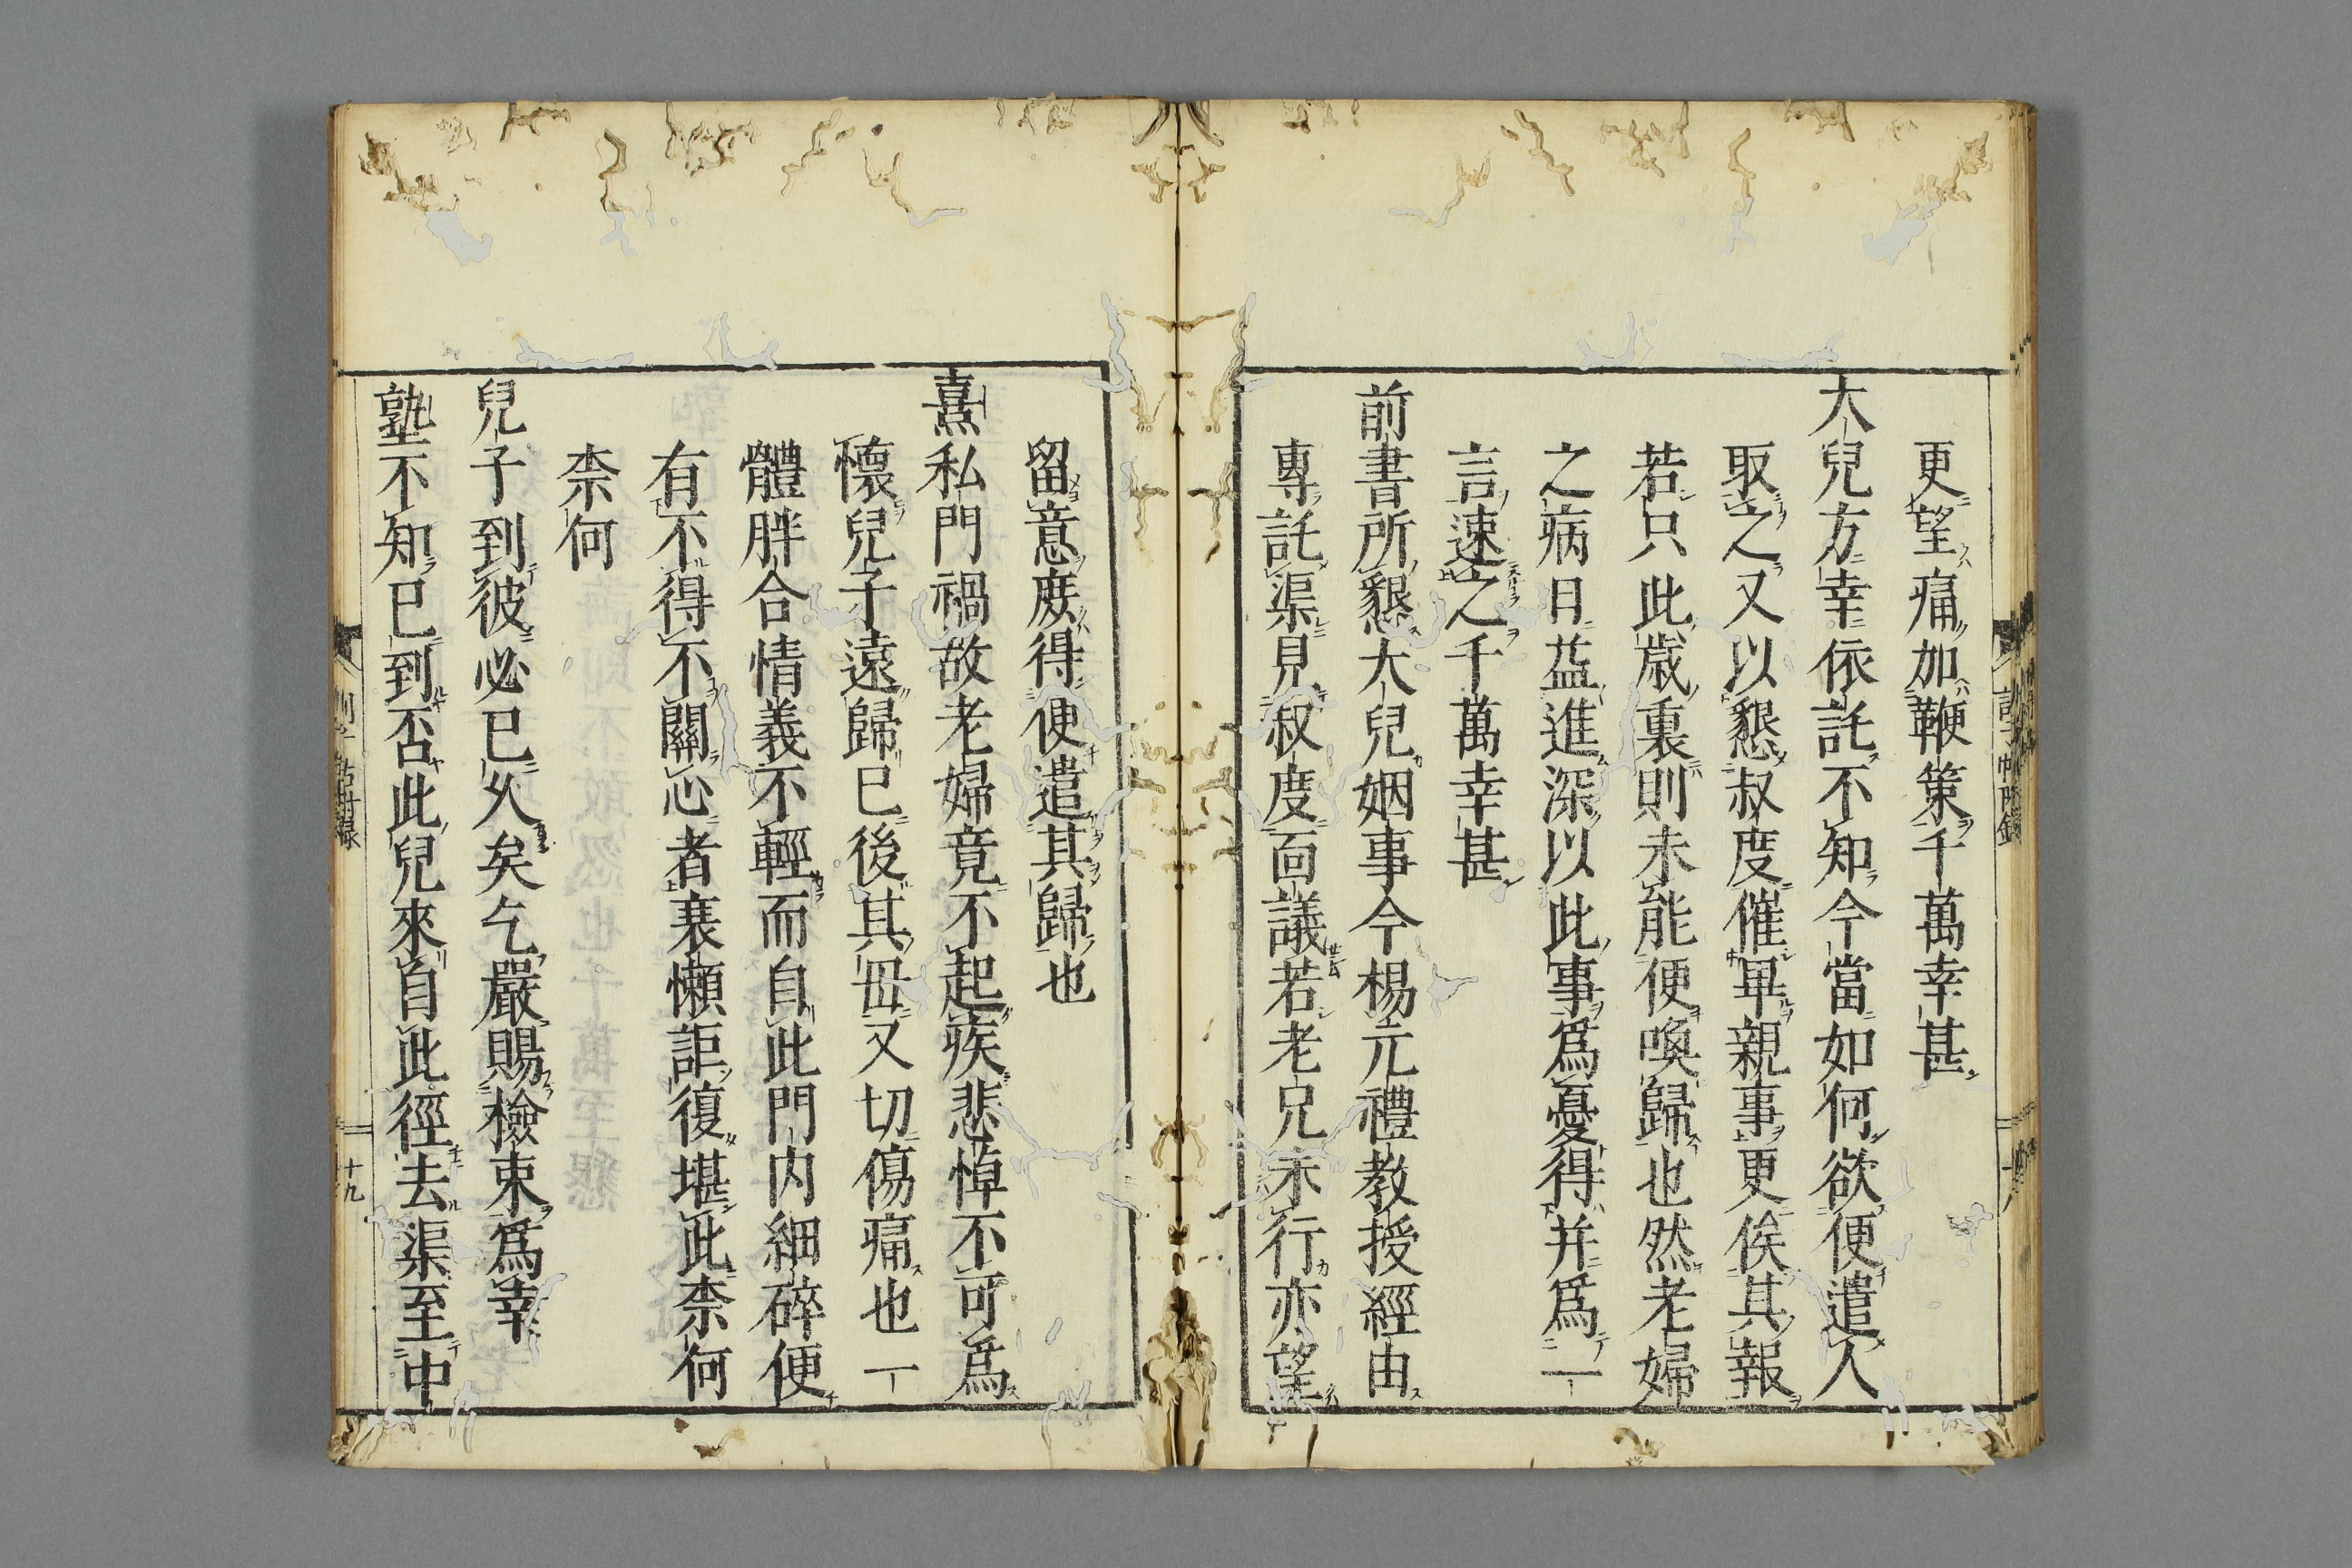 更望痛加鞭策千萬幸甚
大兒方幸依託不知今當如何欲便遣人
取之又以懇叔度催畢親事更俟其報
若只此歳裏則未能便喚歸也然老婦
之病日益進深以此事爲憂得并爲一
言速之千萬幸甚
前書所懇大兒姻事今楊元禮教授經由
專託渠見叔度面議若老兄未行亦望
留意庶得便遣其歸也
熹私門禍故老婦竟不起疾悲悼不可爲
懷兒子遠歸已後其毋又切傷痛也一
體胖合情義不輕而自此門内細碎便
有不得不關心者衰懶詎復堪此柰何
柰何
兒子到彼必已乆矣乞嚴賜檢束爲幸
塾不知已到否此兒來自此徑去渠至中
十九